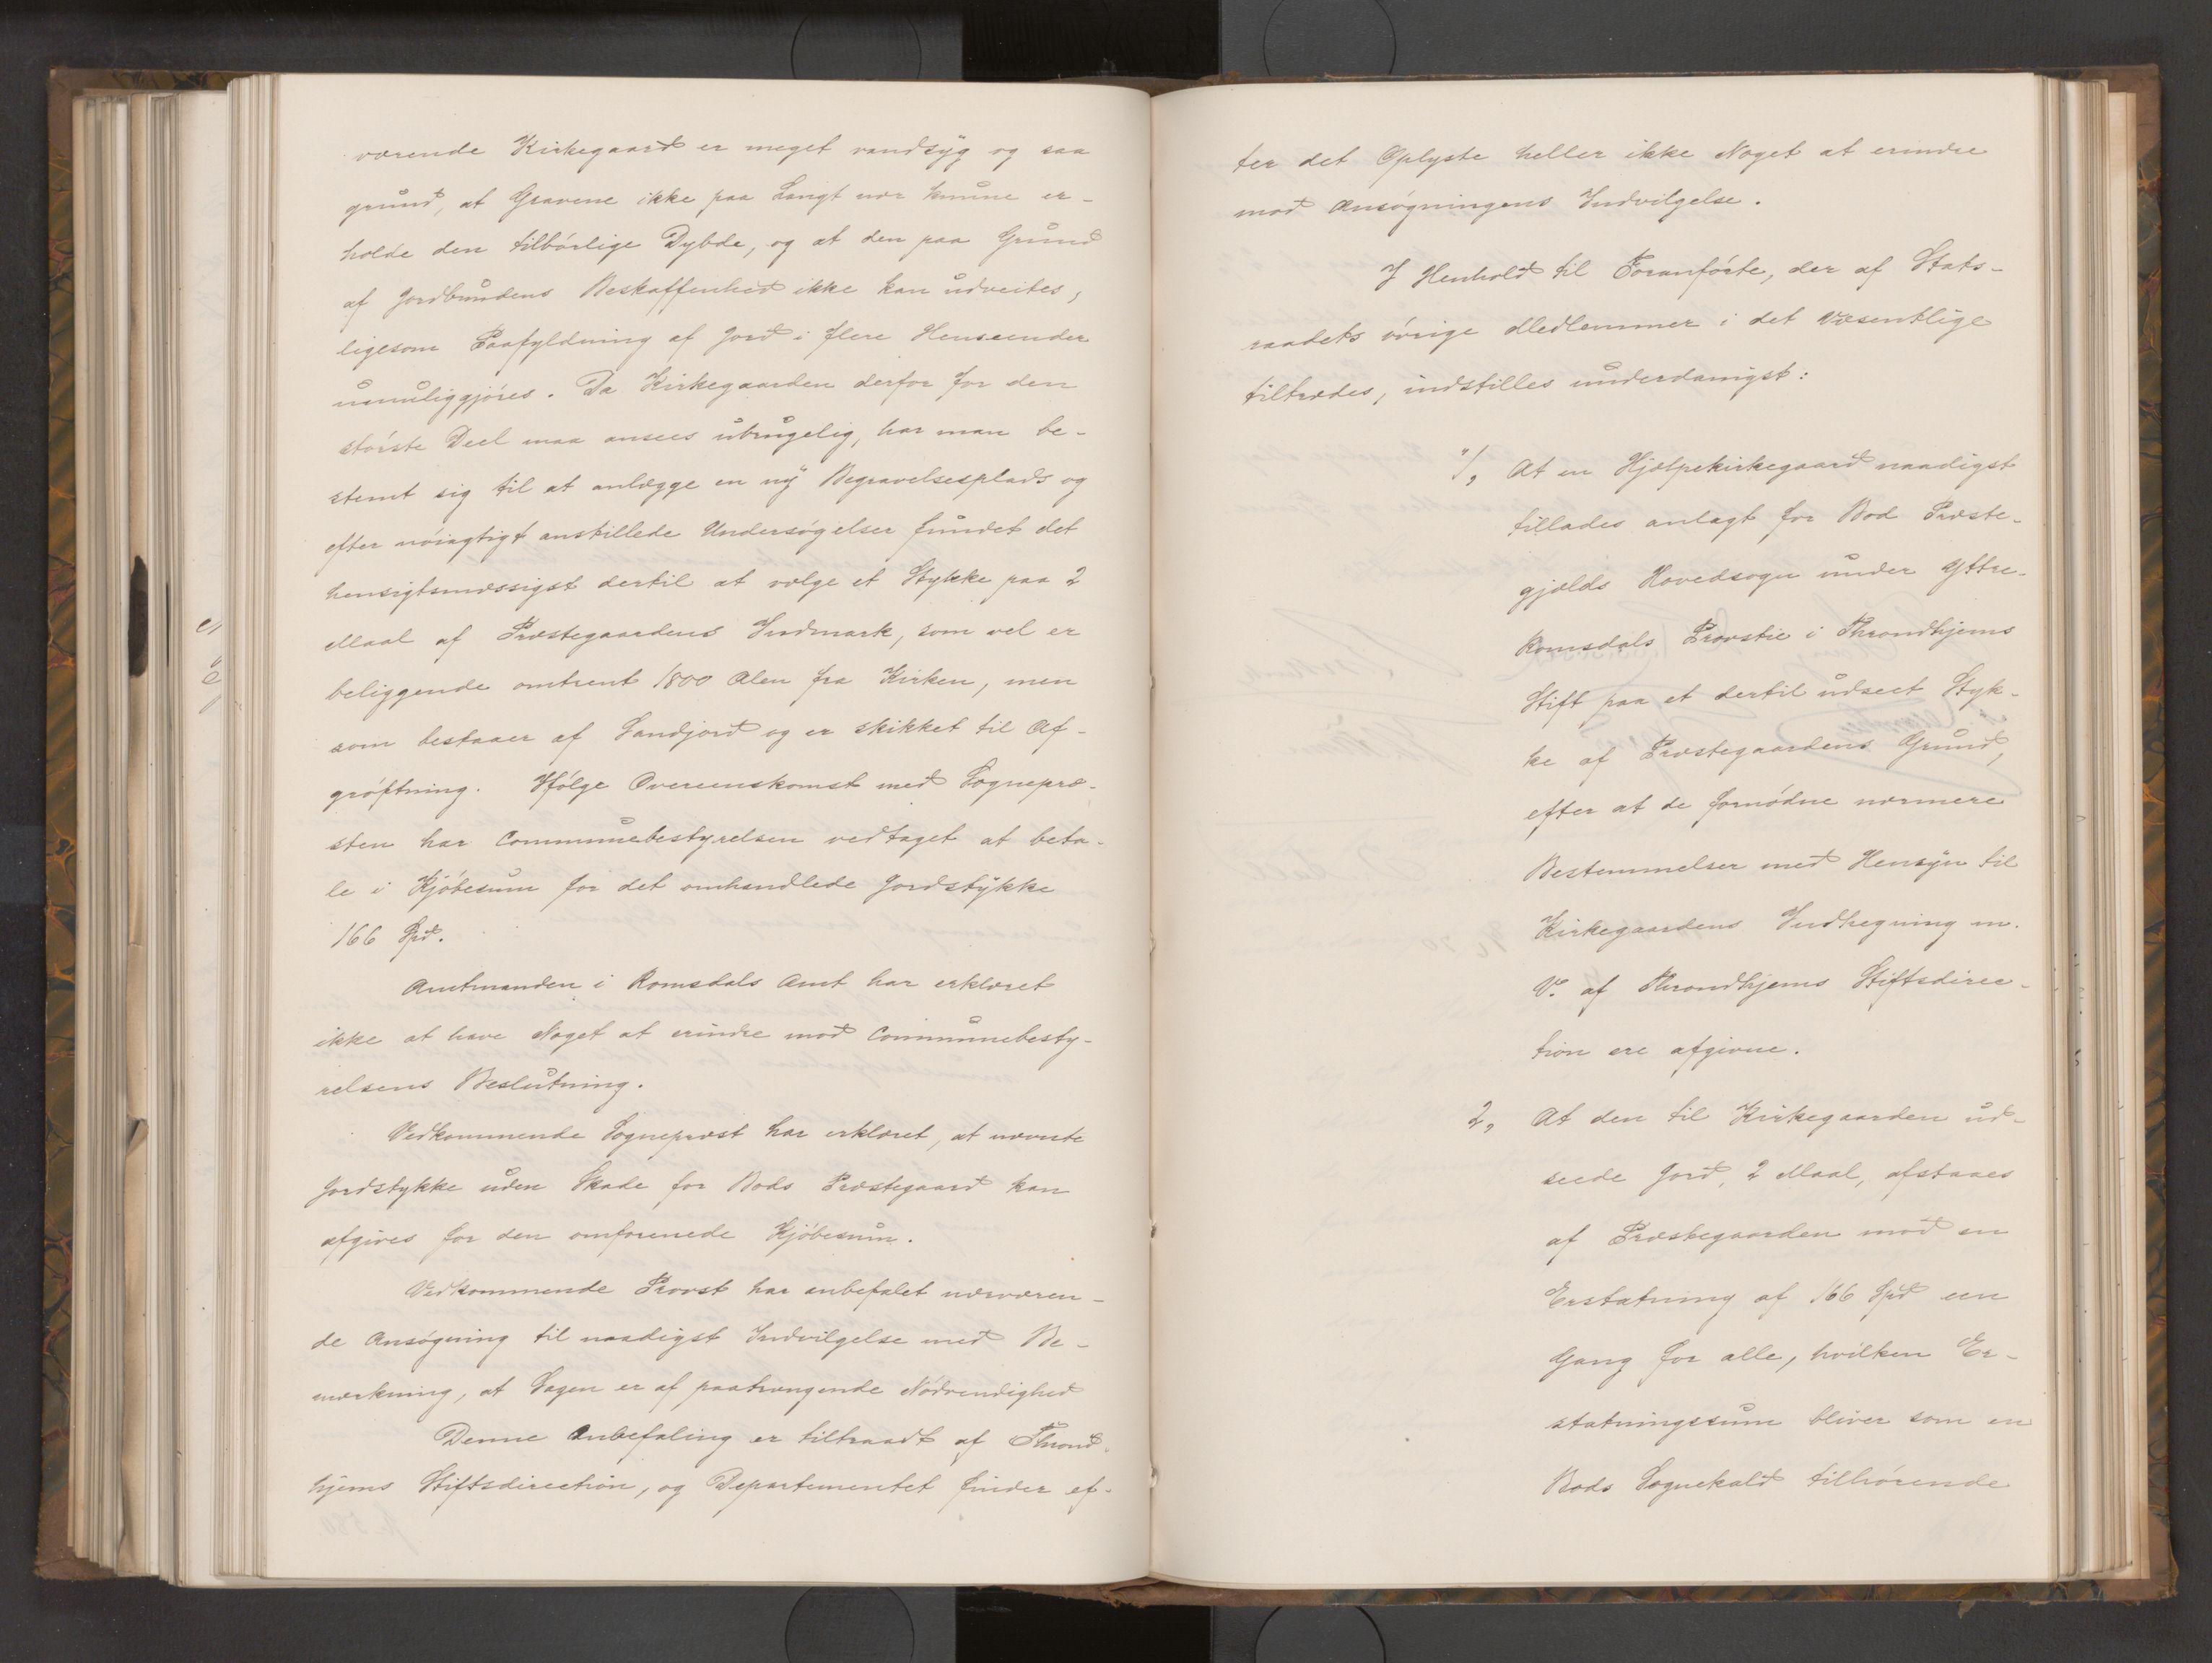 værende Kirkegaard er meget vandsyg og saa
grund, at Gravene ikke paa Langt nær kunne er-
holde den tilbørlige Dybde, og at den paa Grund
af Jordbundens Beskaffenhed ikke kan udveites,
ligesom Paafyldning af Jord i flere Henseender
umuliggjøres. Da Kirkegaarden derfor for den
største Deel maa ansees ubrugelig, har man be-
stemt sig til at anlægge en ny Begravelsesplads og
efter nøiagtigt anstillede Undersøgelser fundet det
hensigtsmæssigst dertil at vælge et Stykke paa 2
Maal af Præstegaardens Indmark, som vel er
beliggende omtrent 1800 Alen fra Kirken, men
som bestaaer af Sandjord og er skikket til Af-
grøftning. Ifølge Overeenskomst med Sognepræ-
sten har Communebestyrelsen vedtaget at beta-
le i Kjøbesum for det omhandlede Jordstykke
166 Spd.
Amtmanden i Romsdals Amt har erklæret
ikke at have Noget at erindre mod Communebesty-
relsens Beslutning.
Vedkommende Sognepræst har erklæret, at nævnte
Jordstykke uden Skade for Bods Præstegaard kan
afgives for den omforenede Kjøbesum.
Vedkommende Provst har anbefalet nærværen-
de Ansøgning til naadigst Indvilgelse med Be-
mærkning, at Sagen er af paatrængende Nødvendighed
Denne Anbefaling er tiltraadt af Thrond-
hjems Stiftsdirection, og Departementet finder ef-
ter det Oplyste heller ikke Noget at erindre
mod Ansøgningens Indvilgelse.
I Henhold til Foranførte, der af Stats-
raadets øvrige Medlemmer i det Væsentlige
tiltrædes, indstilles underdanigst:
1, At en Hjælpekirkegaard naadigst
tillades anlagt for Bod Præste-
gjælds Hovedsogn under Yttre-
Romsdals Provstie i Throndhjems
Stift paa et dertil udseet Styk-
ke af Præstegaardens Grund,
efter at de fornødne nærmere
Bestemmelser med Hensyn til
Kirkegaardens Indhegning m.
V. af Throndhjems Stiftsdirec-
tion ere afgivne.
2, At den til Kirkegaarden ud-
seede Jord, 2 Maal, afstaaes
af Præstegaarden mod en
Erstatning af 166 Spd een
Gang for alle, hvilken Er-
statningssum bliver som en
Bods Sognekald tilhørende